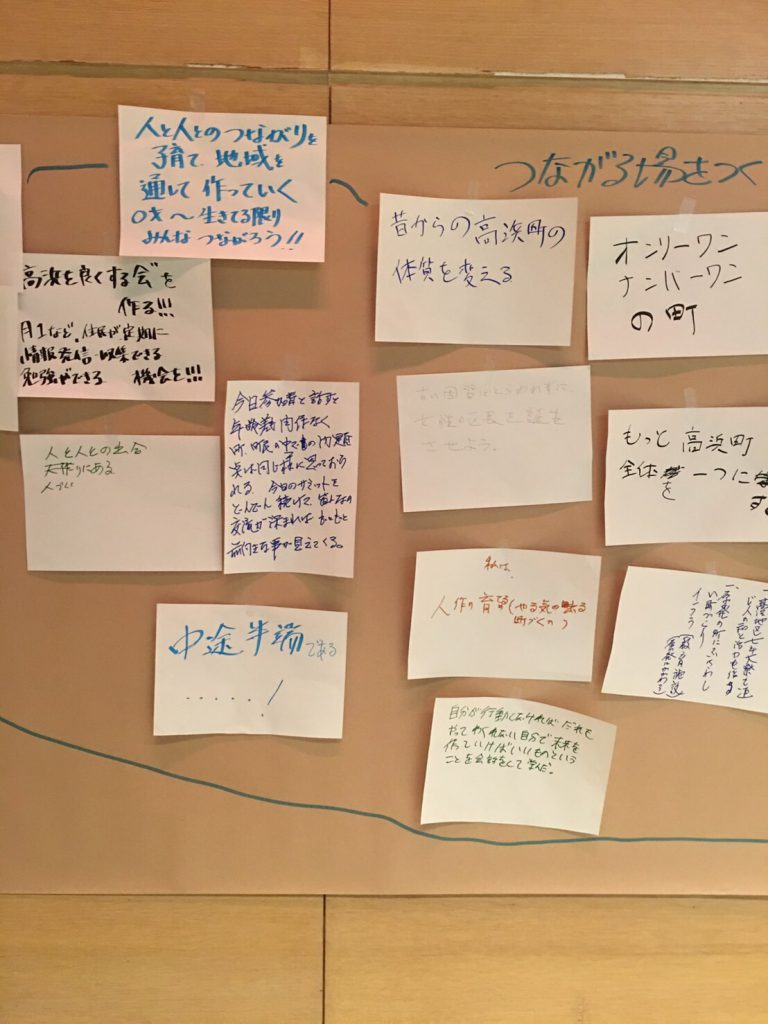 つながる場をつく
人と人とのつながりを
子育て、地域を
通して作っていく
0才〜生きてる限り
みんなつながろう!!
昔からの高浜町の
体質を変える
オンリーワン
ナンバーワン
の町
高浜を良くする会を
作る!!!
月1など、住民が定期に
情報発信・収集できる
勉強ができる 機会を!!!
今日参加者と話すと
年齢 関係なく
今日のサミットを
どんどん続けて、皆んなの
交流が深まれば もっともっと
前向きな事が見えてくる。
古い因習にとらわれずに
女性の区長を誕生
させよう。
もっと 高浜町
全体を一つに
人と人との出会
私は、
人作り育習(やる気の出る
町づくり)
中途半端である
......!
インフラ
自分が行動しなければだれも
やってくれない自分で未来を
作っていけばいいものという
ことを会話をして学んだ。